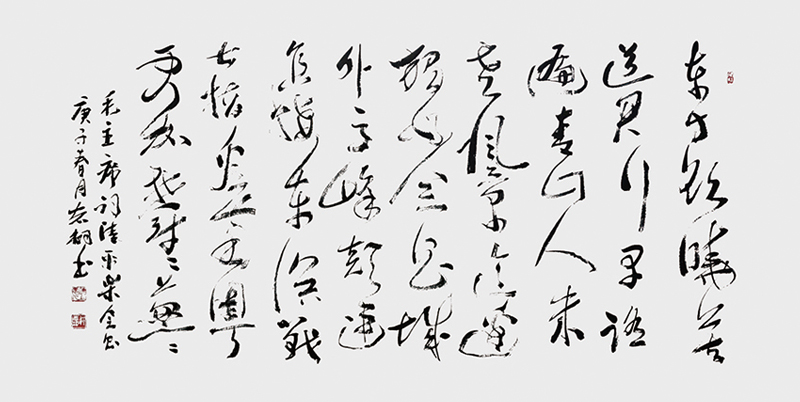 东方欲曉莫
道君行早踏
遍青山人未
老風景這邊
独好会昌城
外高峰颠连
直接东溟战
士指看南粤
更加郁〻葱〻
毛主席词清平乐会昌
庚子春月书